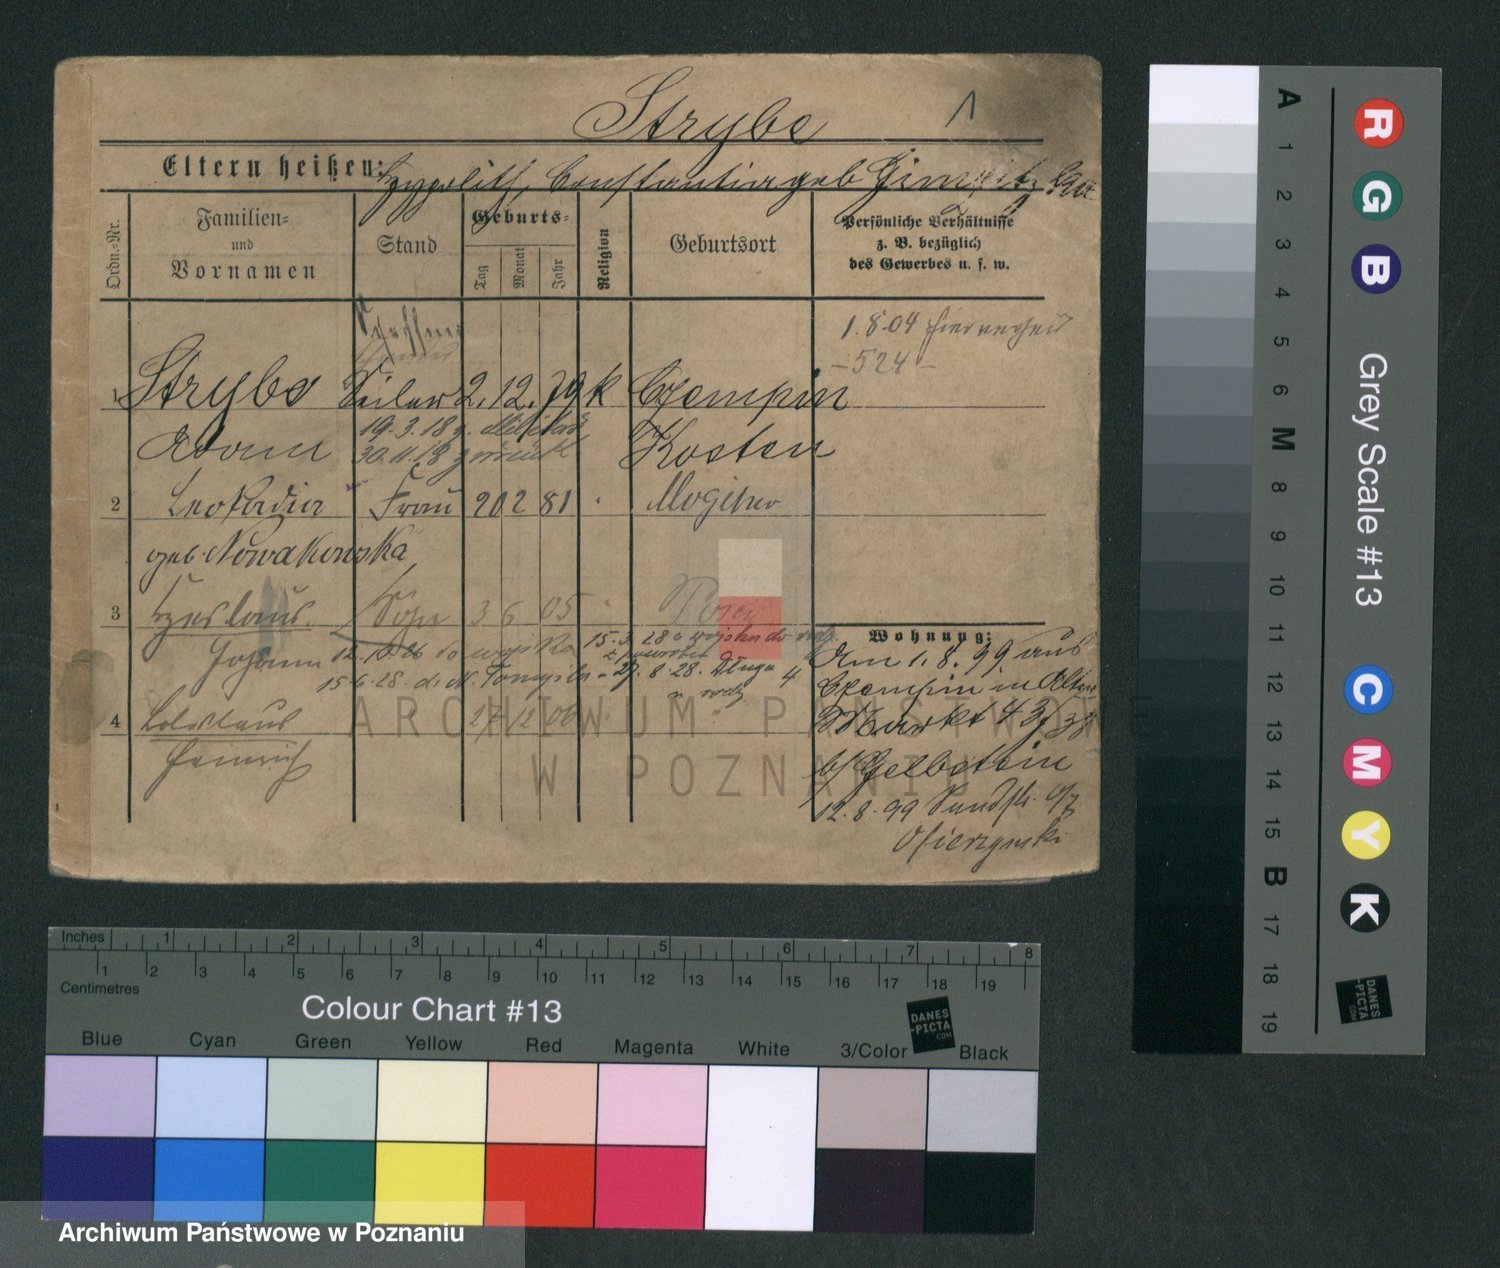 Strybe
1
Eltern heißen: Hyppolith, Constantia geb
Ordn.-Nr.
Familien- und Vornamen
Stand
Geburts-
Tag
Monat
Jahr
Religion
Geburtsort
Persönliche Verhältnisse
z. B. bezüglich
des Gewerbes u. s. w.
1.8.04
-524-
1 Strybe Seiler 2. 12. 79 k Czempin
Adam 19.3.18 z. Militär Kosten
30.11.18 zurück
2 Leokadia Frau 20 2 81 Mogilno
geb Nowakowska
3 Czeslaus Sohn 3 6 05 Posen
Johann 12.10.26 do wojska 15.3.28 z wojska do
15.6.28 do N. Tomyśla - 27.8.28. Długa 4
4 Ladislaus 27/12 06
Heinrich
Wohnung:
Am 1.8.99 aus
Czempin in Alten
Markt 43
b/ Gelbstein
12.8.99 Sandstr.
ARCHIWUM PAŃSTWOWE
W POZNANIU
A 1 2 3 4 5 6 M 8 9 10 11 12 13 14 15 B 17 18 19
R G B
Grey Scale #13
C M Y K
DANES
-PICTA
.COM
Inches 1 2 3 4 5 6 7 8
1 2 3 4 5 6 7 8 9 10 11 12 13 14 15 16 17 18 19
Centimetres
Colour Chart #13
DANES
-PICTA
.COM
Blue Cyan Green Yellow Red Magenta White 3/Color Black
Archiwum Państwowe w Poznaniu